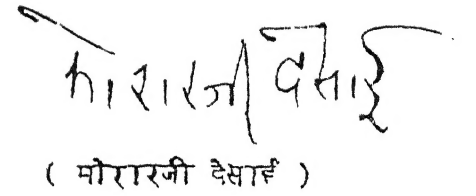 मोरारजी देसाई
( मोरारजी देसाई )